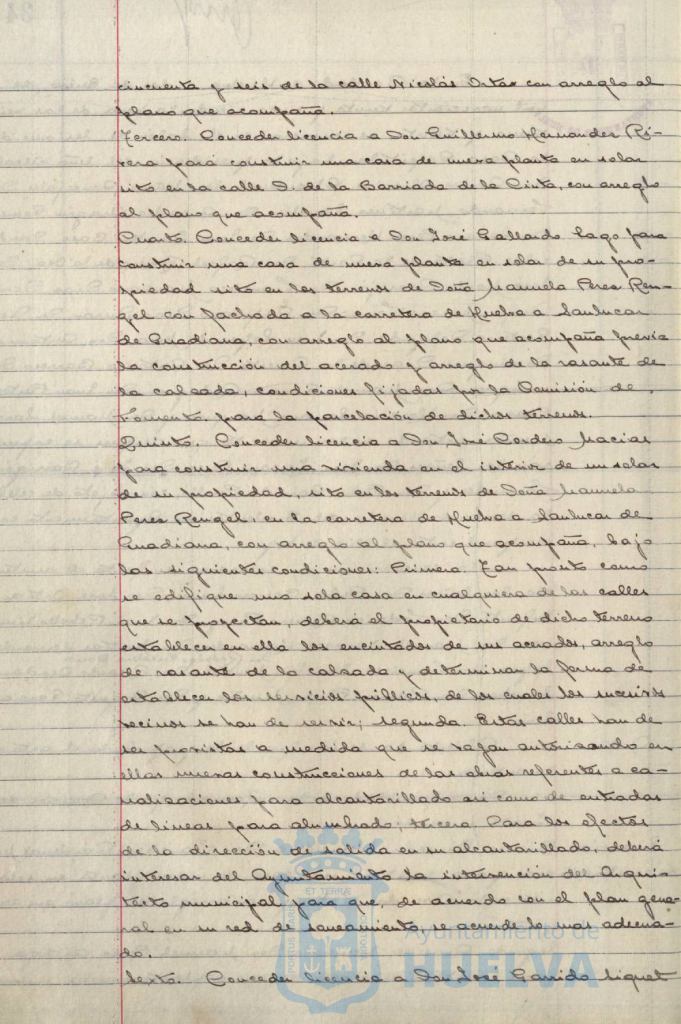 cincuenta y seis de la calle Nicolás Ortas con arreglo al
plano que acompaña.
Tercero. Conceder licencia a Don Guillermo Hernandez Ri-
vera para construir una casa de nueva planta en solar
sito en la calle D. de la Barriada de la Cinta, con arreglo
al plano que acompaña.
Cuarto. Conceder licencia a Don José Gallardo Lago para
construir una casa de nueva planta en solar de su pro-
piedad sito en los terrenos de Doña Manuela Perez Ren-
gel con fachada a la carretera de Huelva a Sanlucar
de Guadiana, con arreglo al plano que acompaña previa
la construcción del acerado y arreglo de la rasante de
la calzada, condiciones fijadas por la Comisión de
Fomento. para la parcelación de dichos terrenos.
Quinto. Conceder licencia a Don José Cordero Macias
para construir una vivienda en el interior de un solar
de su propiedad, sito en los terrenos de Doña Manuela
Perez Rengel, en la carretera de Huelva a Sanlucar de
Guadiana, con arreglo al plano que acompaña, bajo
las siguientes condiciones: Primera. Tan pronto como
se edifique una sola casa en cualquiera de las calles
que se proyectan, deberá el propietario de dicho terreno
establecer en ella los encintados de sus acerados, arreglo
de rasante de la calzada y determinar la forma de
establecer los servicios públicos, de los cuales los sucesivos
vecinos se han de servir; segunda. Estas calles han de
ser provistas a medida que se vayan autorizando en
ellas nuevas construcciones de las obras referentes a ca-
nalizaciones para alcantarillado asi como de entradas
de lineas para alumbrado; tercera. Para los efectos
de la dirección de salida en su alcantarillado, deberá
interesar del Ayuntamiento la intervención del Arqui-
tecto municipal para que, de acuerdo con el plan gene-
ral en su red de saneamiento, se acuerde lo mas adecua-
do.
Sexto. Conceder licencia a Don José Garrido Liquet
Ayuntamiento de
HUELVA